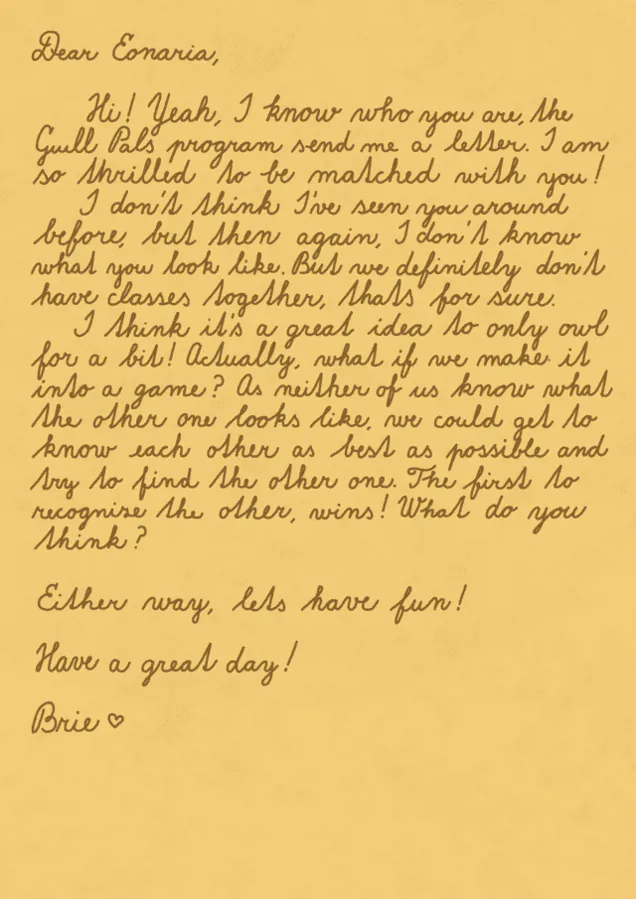 Dear Eonaria,
Hi! Yeah, I know who you are, the
Quill Pals program send me a letter. I am
so thrilled to be matched with you!
I don't think I've seen you around
before, but then again, I don't know
what you look like. But we definitely don't
have classes together, thats for sure.
I think it's a great idea to only owl
for a bit! Actually, what if we make it
into a game? As neither of us know what
the other one looks like, we could get to
know each other as best as possible and
try to find the other one. The first to
recognize the other, wins! What do you
think?
Either way, lets have fun!
Have a great day!
Brie ♡